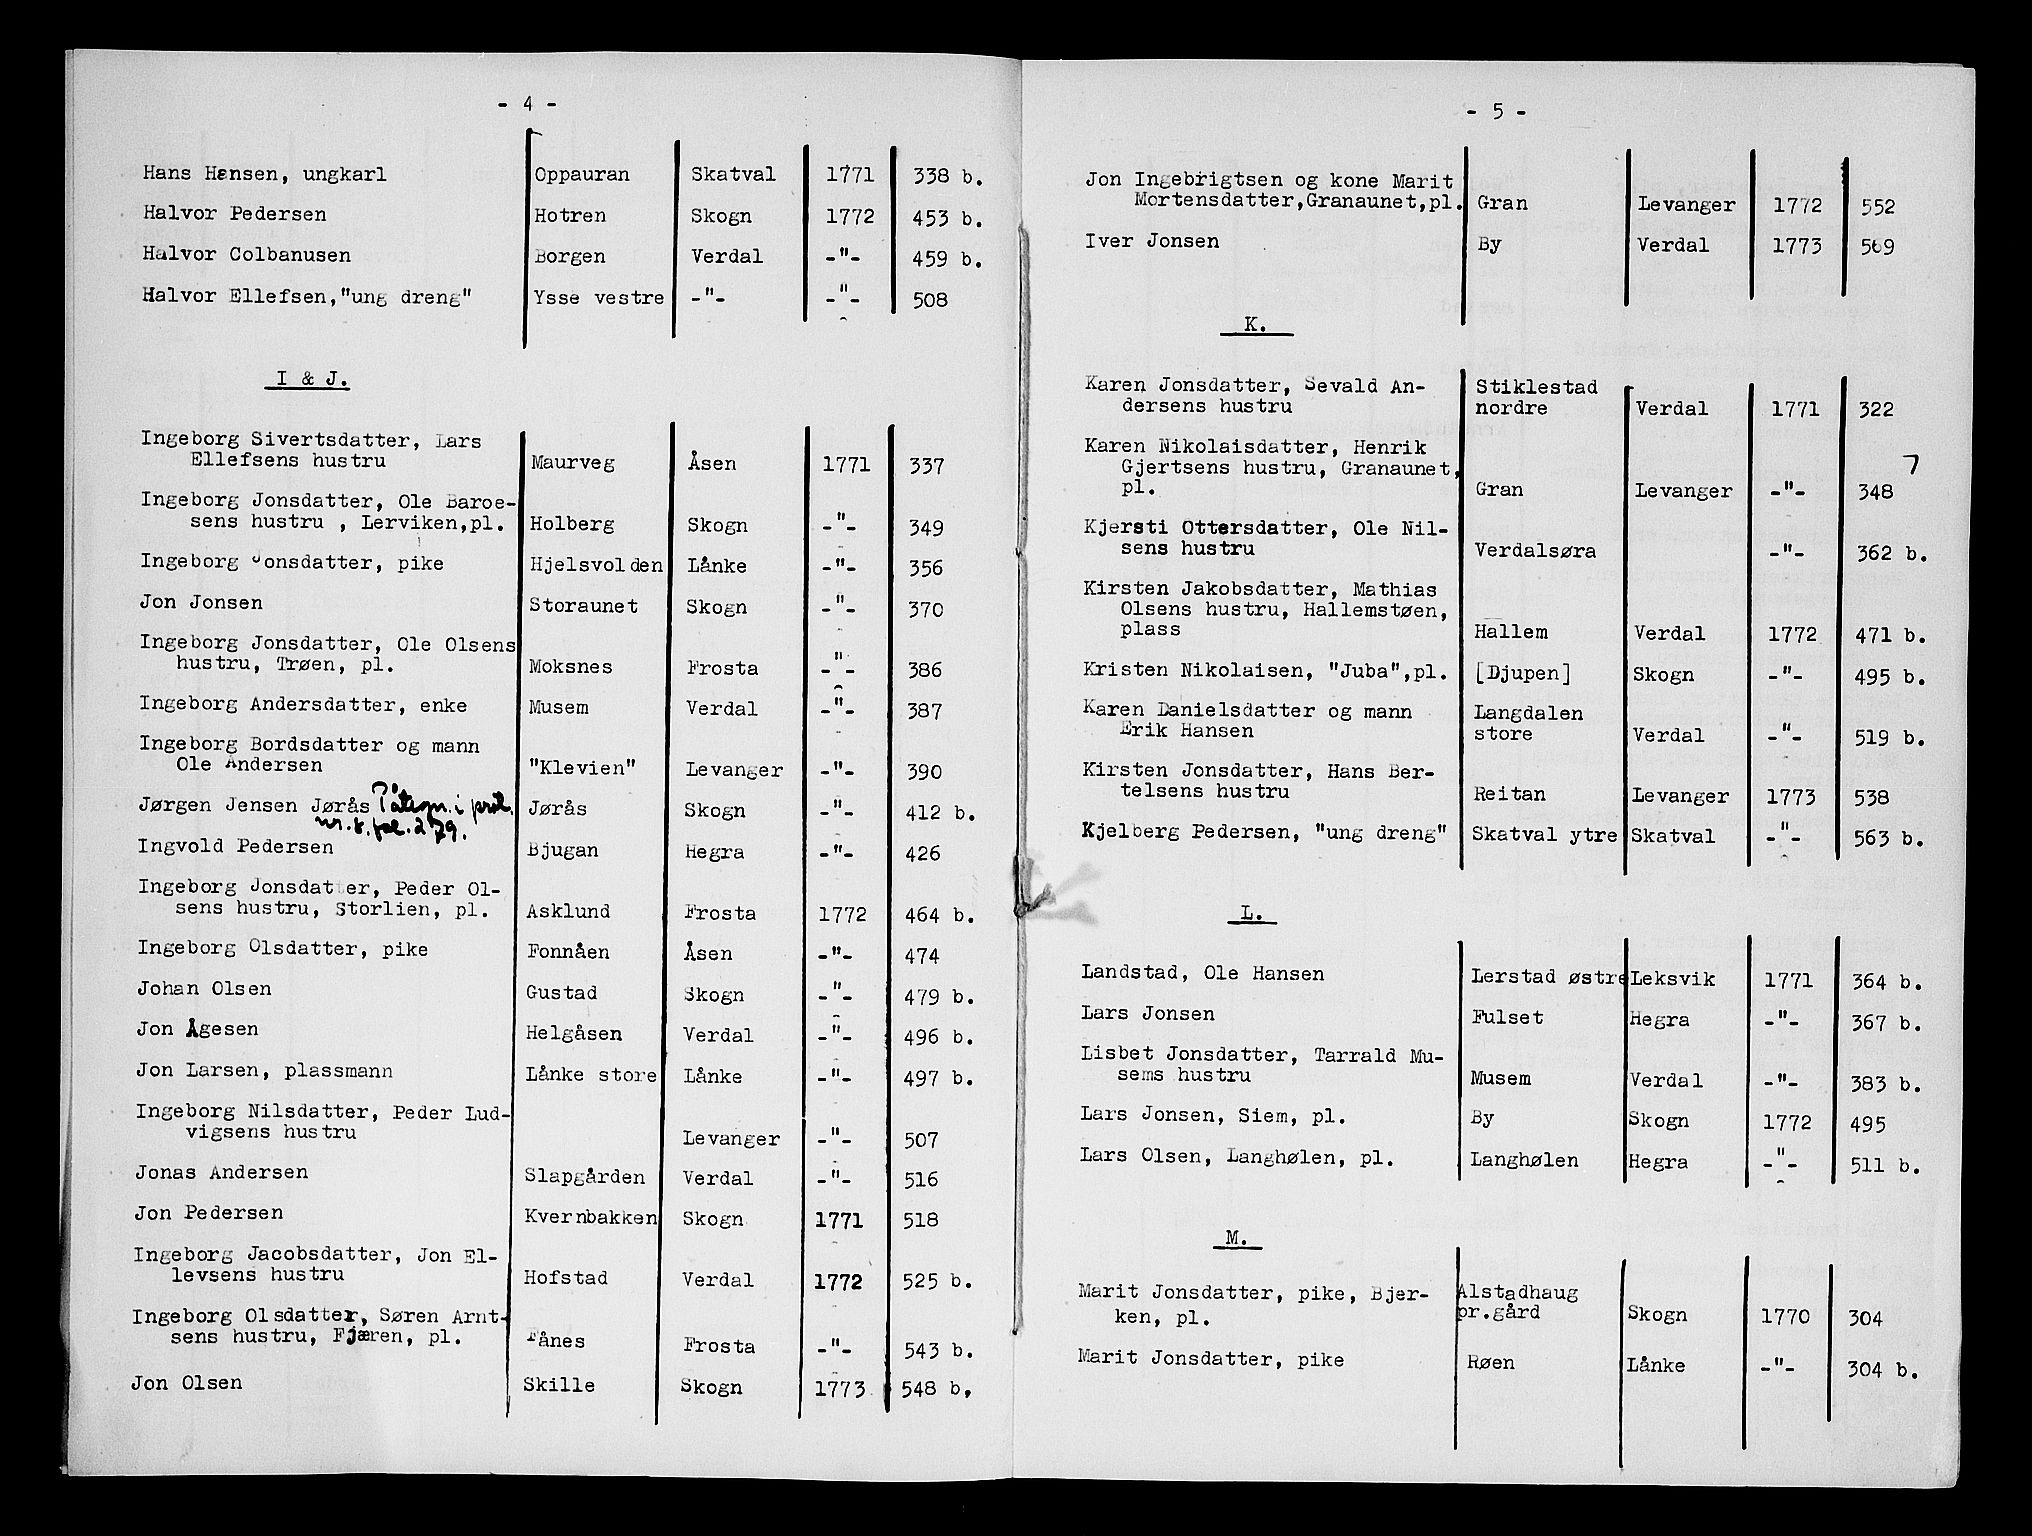 - 4 -
Hans Hansen, ungkarl Oppauran Skatval 1771 338 b.
Halvor Pedersen Hotren Skogn 1772 453 b.
Halvor Colbanusen Borgen Verdal -"- 459 b.
Halvor Ellefsen,"ung dreng" Ysse vestre -"- -"- 508
I & J.
Ingeborg Sivertsdatter, Lars
Ellefsens hustru Maurveg Åsen 1771 337
Ingeborg Jonsdatter, Ole Baroe-
sens hustru , Lerviken,pl. Holberg Skogn -"- 349
Ingeborg Jonsdatter, pike Hjelsvolden Lånke -"- 356
Jon Jonsen Storaunet Skogn -"- 370
Ingeborg Jonsdatter, Ole Olsens
hustru, Trøen, pl. Moksnes Frosta -"- 386
Ingeborg Andersdatter, enke Musem Verdal -"- 387
Ingeborg Bordsdatter og mann
Ole Andersen "Klevien" Levanger -"- 390
Jørgen Jensen Jørås Påtegn. i prot. Jørås Skogn -"- 412 b.
nr. 8. fol. 279.
Ingvold Pedersen Bjugan Hegra -"- 426
Ingeborg Jonsdatter, Peder Ol-
sens hustru, Storlien, pl. Asklund Frosta 1772 464 b.
Ingeborg Olsdatter, pike Fonnåen Åsen -"- 474
Johan Olsen Gustad Skogn -"- 479 b.
Jon Ågesen Helgåsen Verdal -"- 496 b.
Jon Larsen, plassmann Lånke store Lånke -"- 497 b.
Ingeborg Nilsdatter, Peder Lud-
vigsens hustru Levanger -"- 507
Jonas Andersen Slapgården Verdal -"- 516
Jon Pedersen Kvernbakken Skogn 1771 518
Ingeborg Jacobsdatter, Jon El-
levsens hustru Hofstad Verdal 1772 525 b.
Ingeborg Olsdatter, Søren Arnt-
sens hustru, Fjæren, pl. Fånes Frosta -"- 543 b.
Jon Olsen Skille Skogn 1773 548 b.
- 5 -
Jon Ingebrigtsen og kone Marit
Mortensdatter,Granaunet,pl. Gran Levanger 1772 552
Iver Jonsen By Verdal 1773 569
K.
Karen Jonsdatter, Sevald An- Stiklestad
dersens hustru nordre Verdal 1771 322
Karen Nikolaisdatter, Henrik
Gjertsens hustru, Granaunet, 7
pl. Gran Levanger -"- 348
Kjersti Ottersdatter, Ole Nil-
sens hustru Verdalsøra -"- 362 b.
Kirsten Jakobsdatter, Mathias
Olsens hustru, Hallemstøen,
plass Hallem Verdal 1772 471 b.
Kristen Nikolaisen, "Juba",pl. [Djupen] Skogn -"- 495 b.
Karen Danielsdatter og mann Langdalen
Erik Hansen store Verdal -"- 519 b.
Kirsten Jonsdatter, Hans Ber-
telsens hustru Reitan Levanger 1773 538
Kjelberg Pedersen, "ung dreng" Skatval ytre Skatval -"- 563 b.
L.
Landstad, Ole Hansen Lerstad østre Leksvik 1771 364 b.
Lars Jonsen Fulset Hegra -"- 367 b.
Lisbet Jonsdatter, Tarrald Mu-
sems hustru Musem Verdal -"- 383 b.
Lars Jonsen, Siem, pl. By Skogn 1772 495
Lars Olsen, Langhølen, pl. Langhølen Hegra -"- 511 b.
M.
Marit Jonsdatter, pike, Bjer- Alstadhaug
ken, pl. pr.gård Skogn 1770 304
Marit Jonsdatter, pike Røen Lånke -"- 304 b.